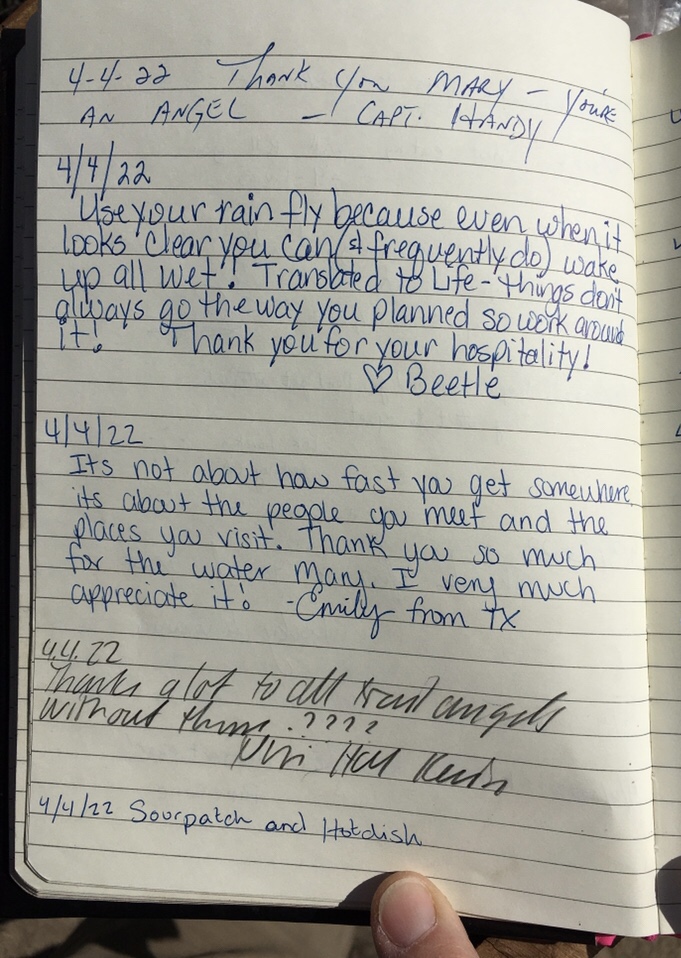 4-4-22 Thank you MARY - you're
AN ANGEL - CAPT. HANDY
4/4/22
Use your rain fly because even when it
looks clear you can (& frequently do) wake
up all wet! Translated to Life - things don't
always go the way you planned so work around
it! Thank you for your hospitality!
♡ Beetle
4/4/22
Its not about how fast you get somewhere,
its about the people you meet and the
places you visit. Thank you so much
for the water Mary. I very much
appreciate it! -Emily from TX
4.4.22
Thanks a lot to all trail angels
without them .????
4/4/22 Sourpatch and Hotdish